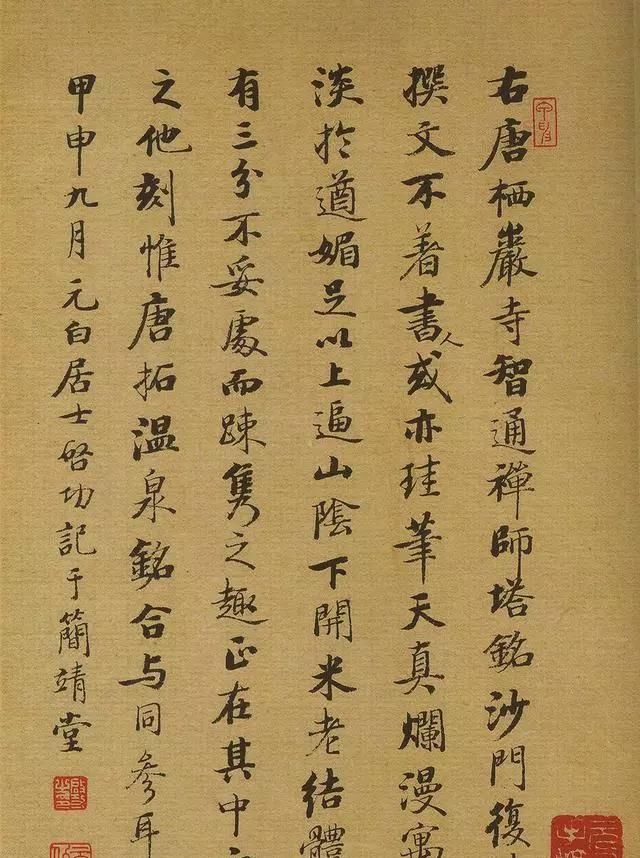 右唐栖巖寺智通禪師塔銘沙門復
撰文不著書人或亦珪筆天真爛漫寓
淡於遒媚足以上逼山陰下開米老結體
有三分不妥處而踈隽之趣正在其中
之他刻惟唐拓温泉銘合与同參耳
甲申九月元白居士啓功記于簡靖堂